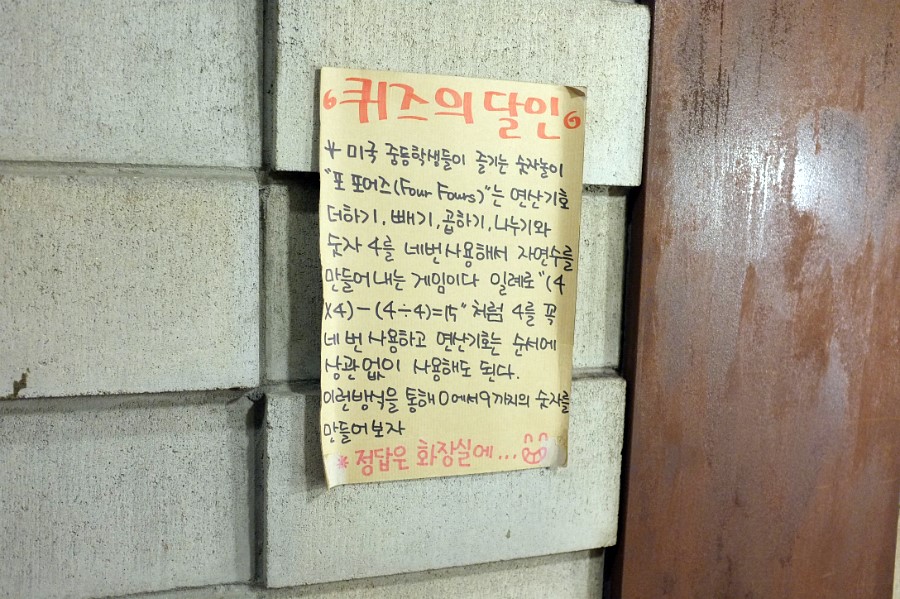 퀴즈의 달인
* 미국 중등학생들이 즐기는 숫자놀이
"포 포어즈(Four Fours)"는 연산기호
더하기, 빼기, 곱하기, 나누기와
숫자 4를 네번사용해서 자연수를
만들어내는 게임이다 일례로"(4
X4)-(4÷4)=15"처럼 4를 꼭
네 번 사용하고 연산기호는 순서에
상관없이 사용해도 된다.
이런방식을 통해 0에서9까지의 숫자를
만들어보자
* 정답은 화장실에...